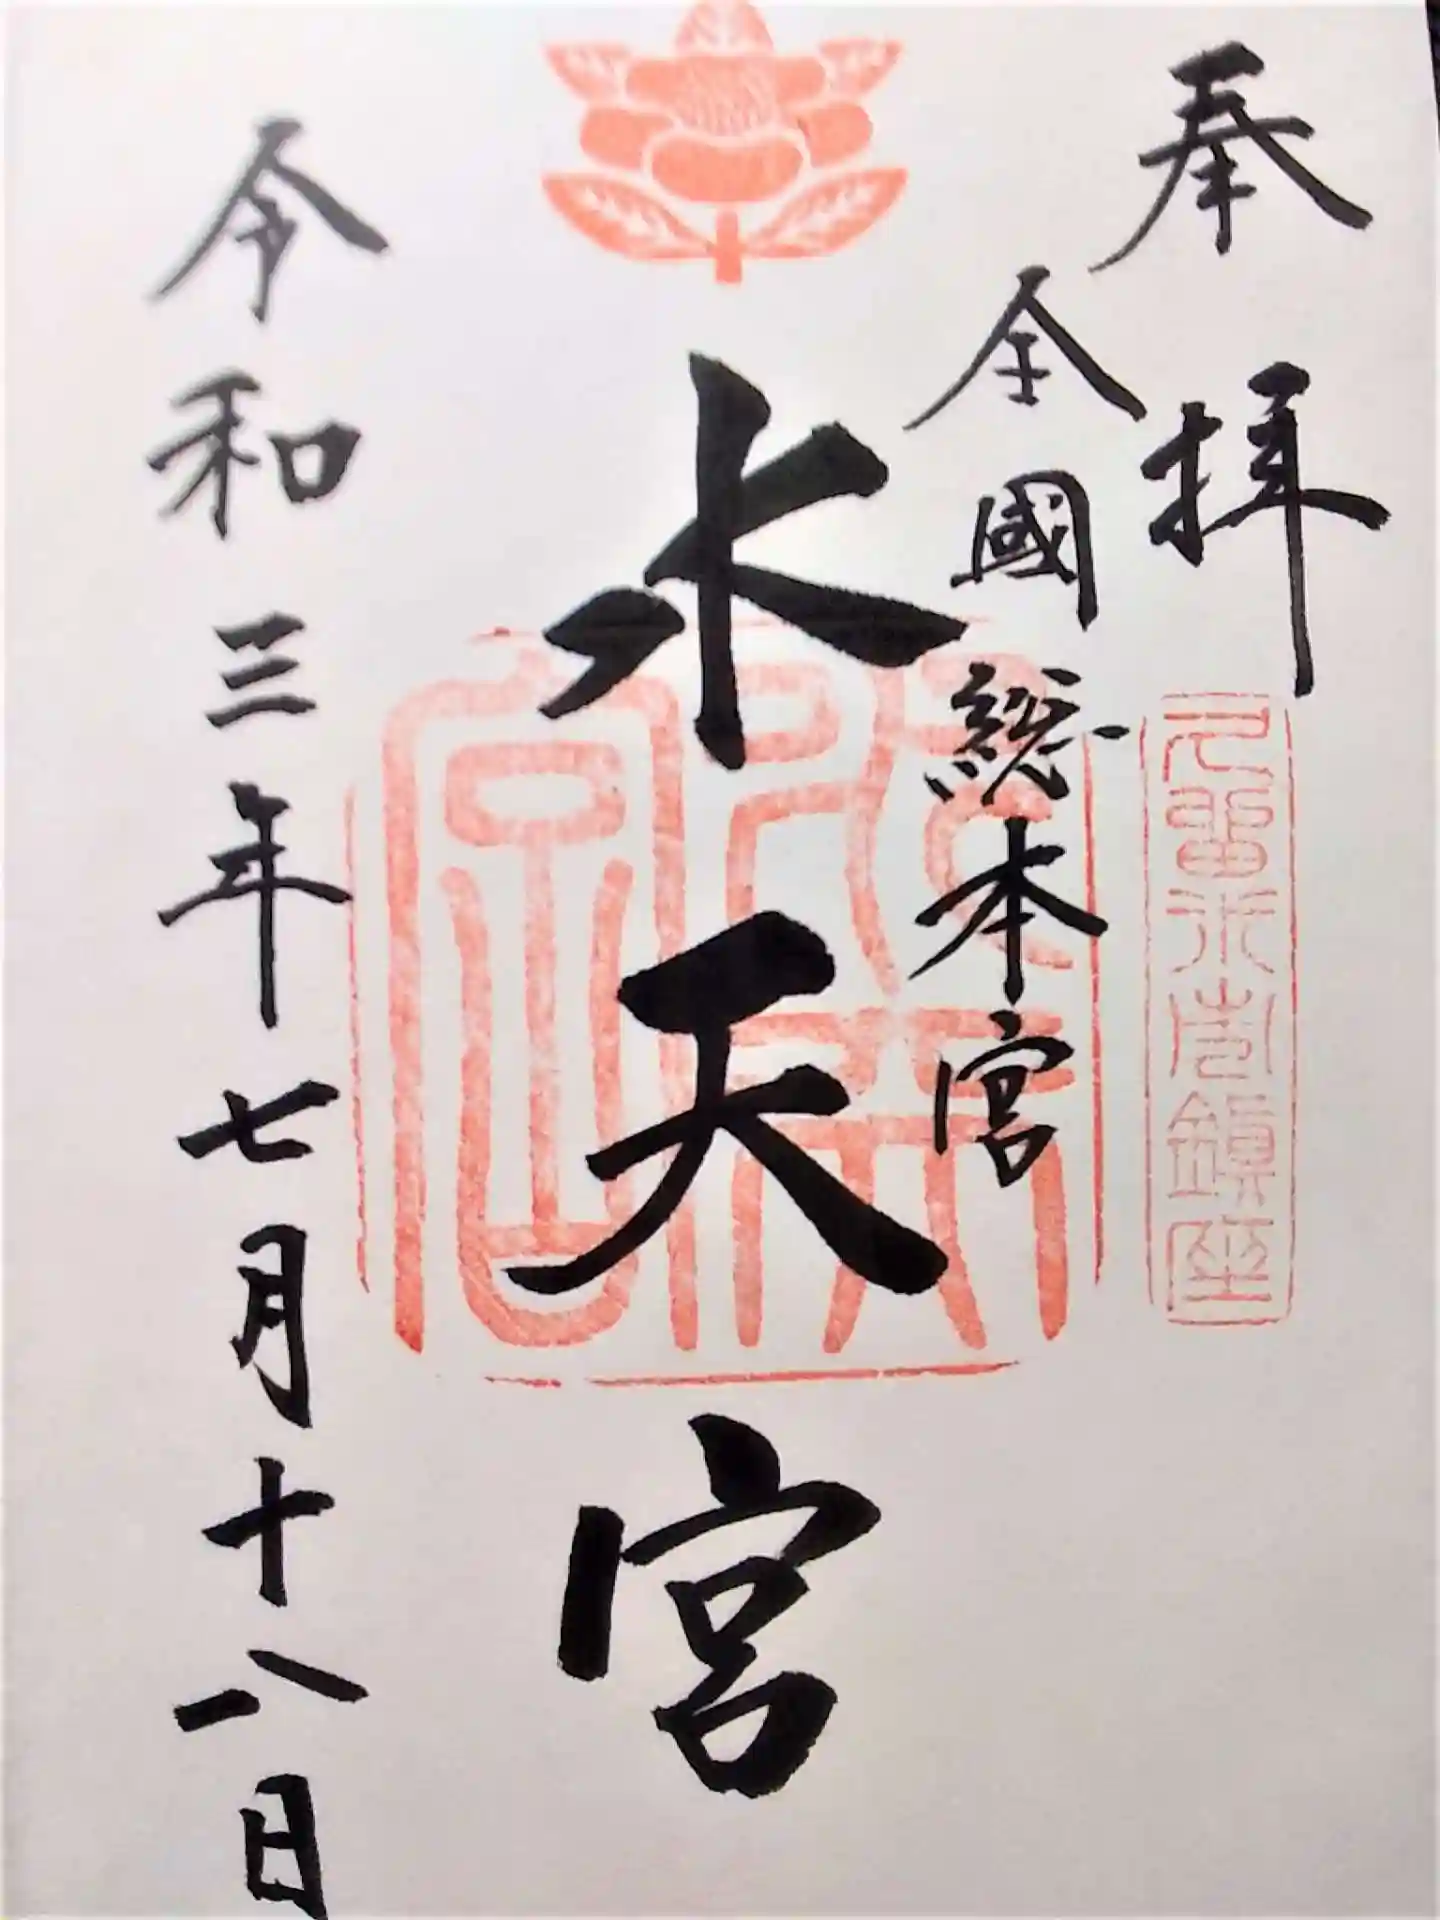 奉拝
久留米市鎮座
全國総本宮
水天宮
令和三年七月十八日